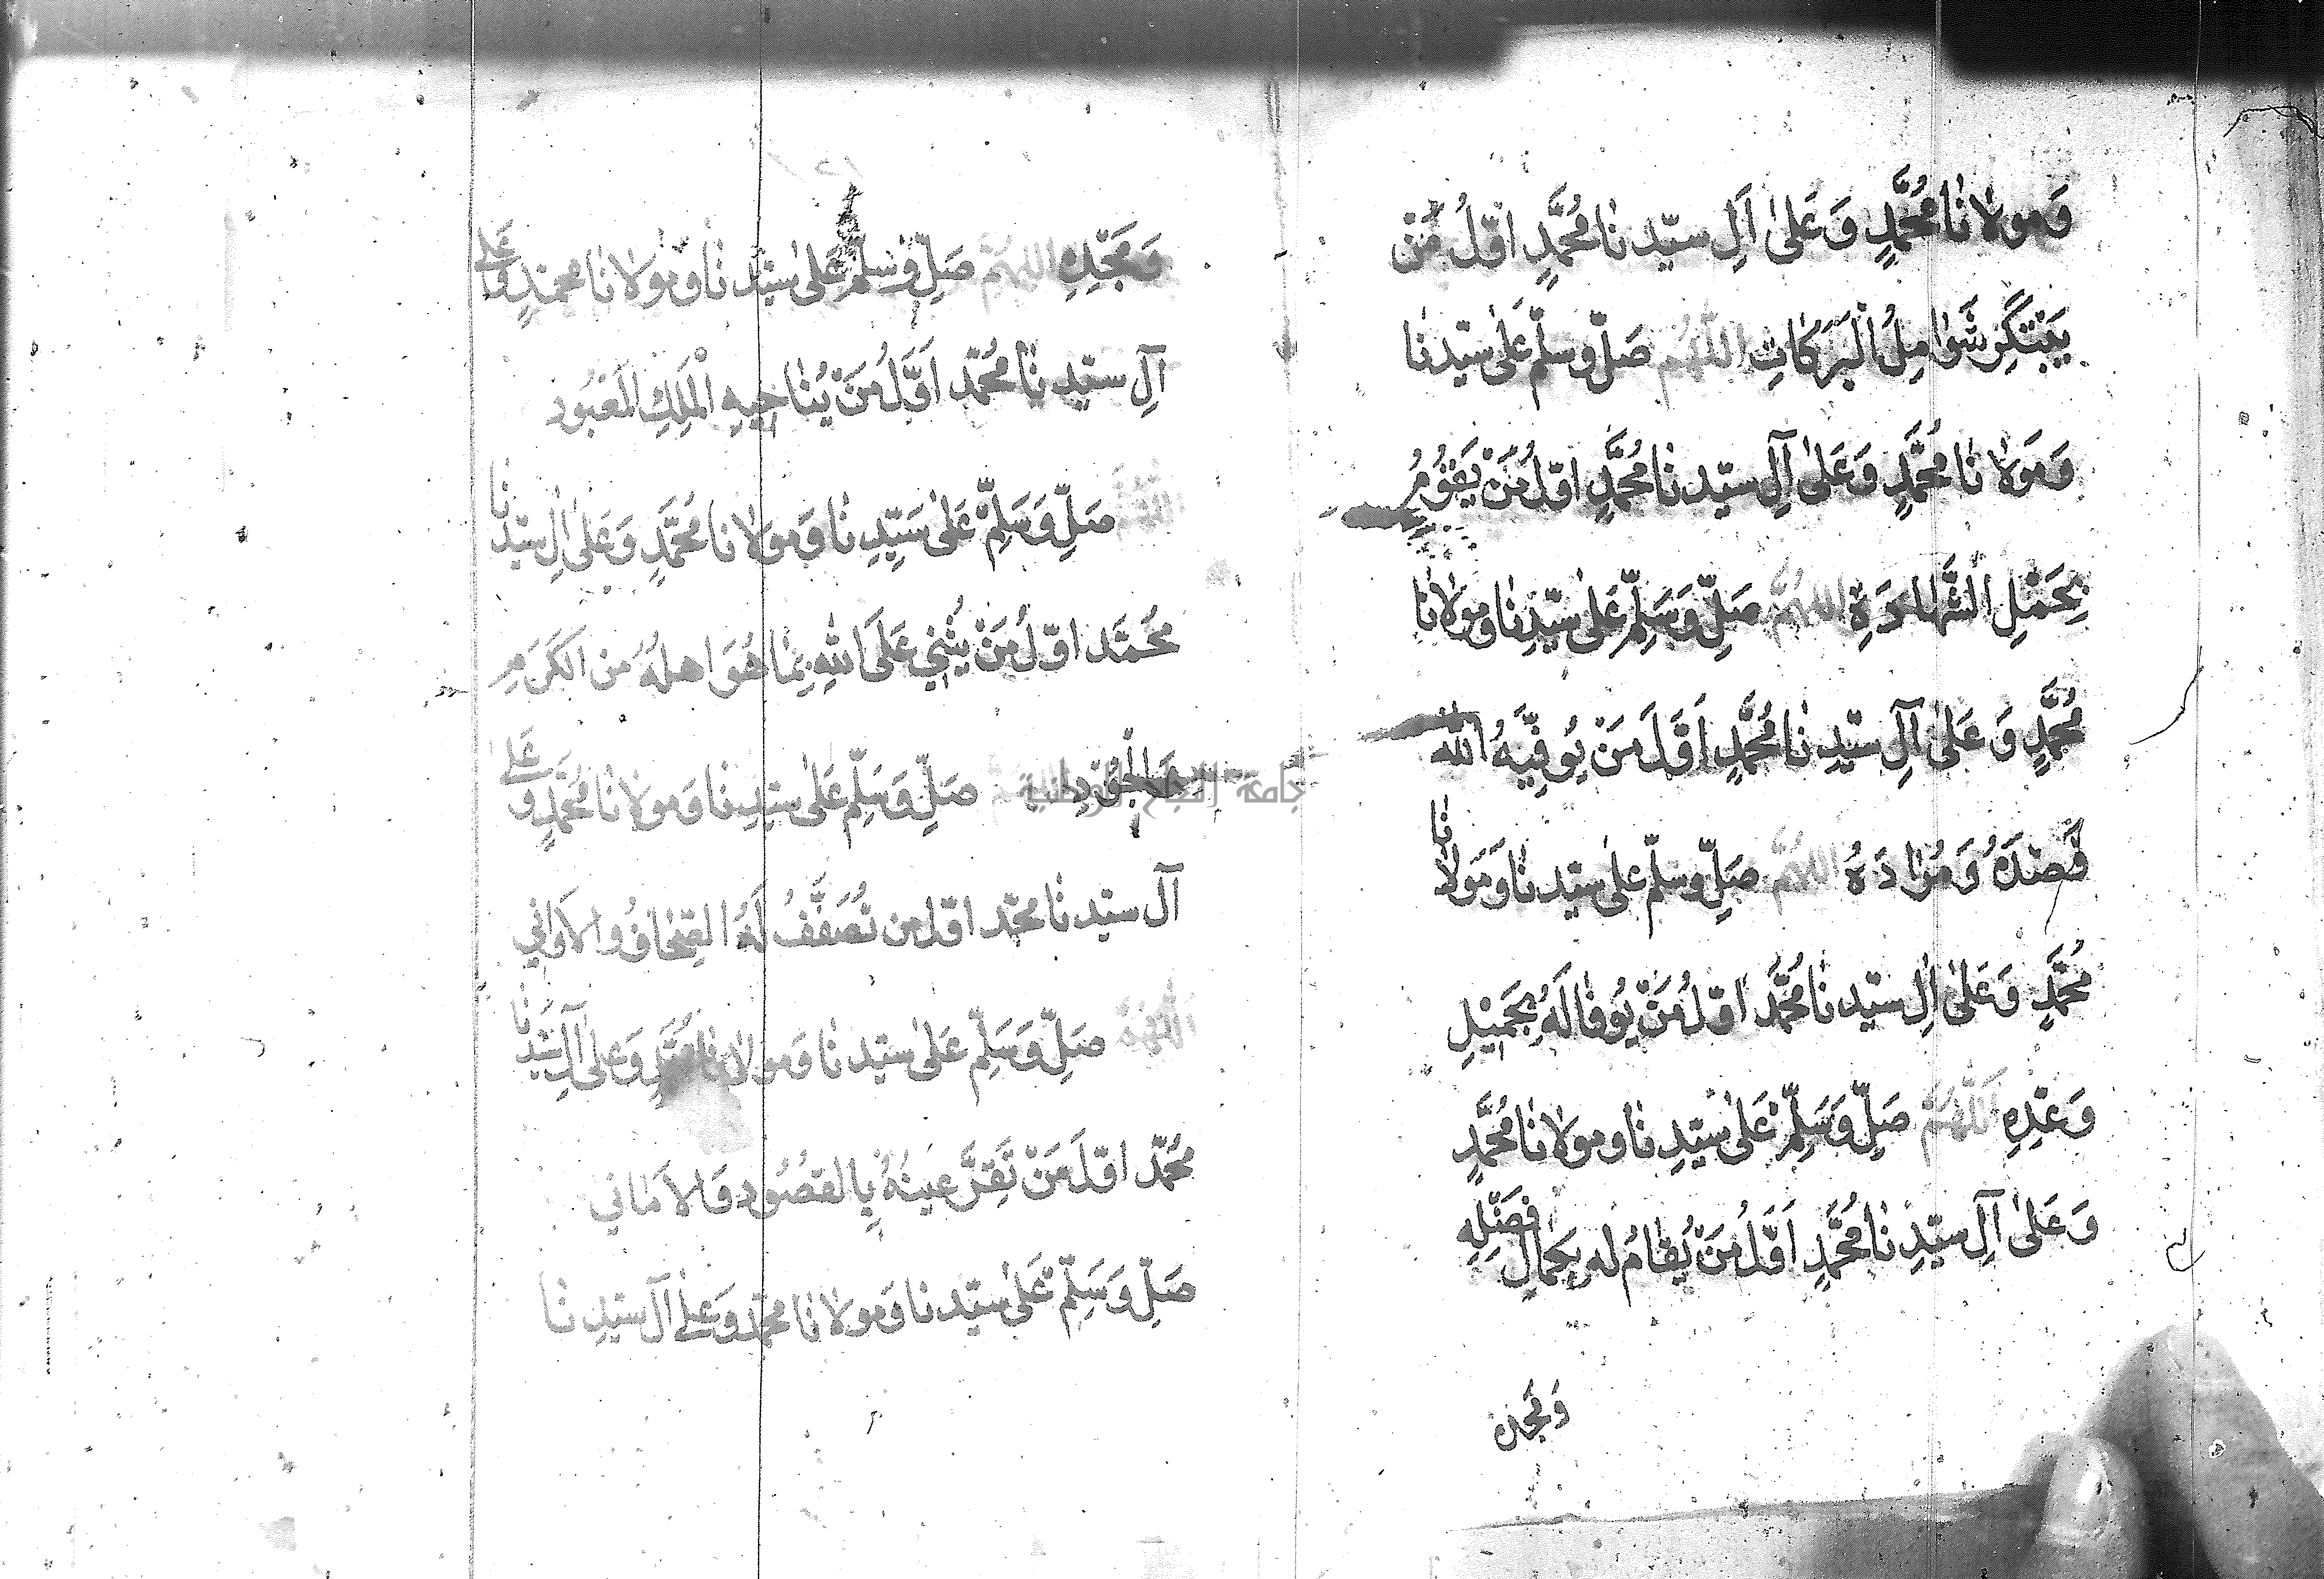 وَمولانَا مُحَمَّدٍ وَعَلىٰ اٰلِ سيّدِنَا مُحَمَّدٍ اوّلُ مَنْ
شَوامِلُ الْبَرَكَاتِ اللّٰهُمَّ صَلِّ وسلّم عَلىٰ سيّدنَا
وَمَوْلانَا مُحَمَّدٍ وَعَلىٰ آلِ سيّدنَا مُحَمَّدٍ اوّلُ مَنْ يَقُوْمُ
بِحَمْلِ الشَّهادَةِ اللّٰهُمَّ صَلِّ وَسَلِّمْ عَلىٰ سيّدِنَا ومَوْلَانَا
مُحَمَّدٍ وَ عَلىٰ آلِ سيّدِنَا مُحَمَّدٍ اَوَّلَ مَنْ يُوفِيّهُ اللّٰهُ
قَصْدَهُ وَمُرادَهُ اللّٰهُمَّ صَلِّ وسلّم على سيّدنَا وَمَولانا
مُحَمَّدٍ وَعَلىٰ اٰلِ سيّدنَا مُحَمَّدٍ اوّلُ مَنْ يُوفَا لَهُ بِجَمِيْلِ
وَعْدِهِ اَللّٰهُمَّ صَلِّ وَسَلِّمْ عَلىٰ سيّدِنَا ومولانَا مُحَمَّدٍ
وَعَلىٰ آلِ سيّدِنَا مُحَمَّدٍ اَوَّلُ مَنْ يُقَامُ له بِكمالِ فَضْلِهِ
وَمَجْدِه
وَمَجْدِهِ اللّٰهُمَّ صَلِّ وَسَلِّمْ عَلىٰ سيّدنَا وَمَوْلانَا محمّدٍ وَعَلى
آلِ سيّدِنَا مُحَمّد اَوَّلُ مَنْ يُنَاجِيهِ الْمَلِكِ الْمَعْبُود
اللّٰهُمَّ صَلِّ وَسَلِّمْ عَلىٰ سَيّدِنَا وَمَولانا مُحَمَّدٍ وَعَلىٰ اٰلِ سيّدنا
مُحَمَّد اوّلُ مَنْ يُثْنِي عَلَى اللهِ بِمَا هُوَ اهلهُ من الكَرَمِ
وَالْجُوْدِ اللّٰهُمَّ صَلِّ وَسَلِّمْ عَلىٰ سيّدِنا وَمولَانَا مُحَمَّدٍ وَعَلى
آل سيّدنَا محمّد اوّل من تُصَفَّفُ لَهُ الصِحَافُ والاَوَانِي
اَللّٰهُمَّ صَلِّ وَسَلِّمْ عَلىٰ سيّدنَا وَمَولانَا مُحَمَّدٍ وَعلى آلِ سَيّدِنَا
مُحَمّد اوّلَ مَنْ تَقِرَّ عينُهُ بِالقصُود وَالاَمَانِي
صَلِّ وَسَلِّمْ عَلىٰ سيّدنا وَمولانَا محمّد وَعلىٰ آل سيّدِ نَا
جامعة النجاح الوطنية